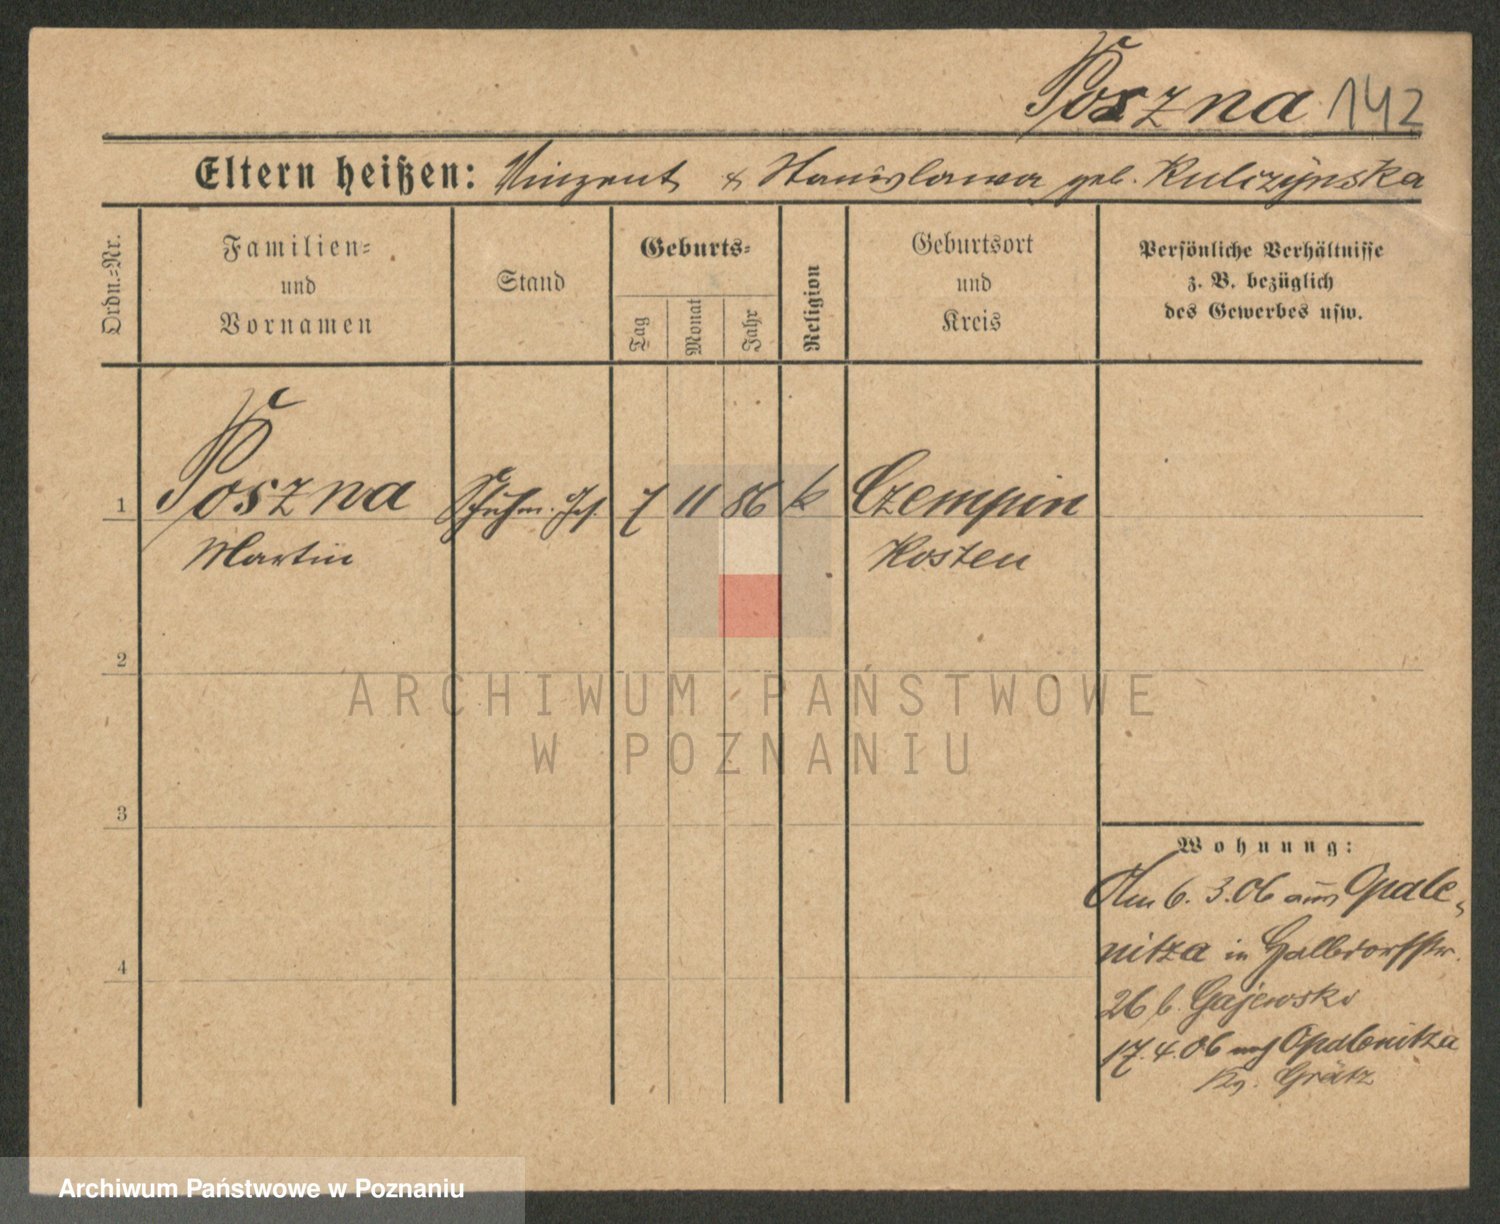 Poszna 142
Eltern heißen: Vinzent & Stanislawa geb. Kulczynska
Ordn.=Nr.
Familien=
und
Vornamen
Stand
Geburts=
Tag
Monat
Jahr
Religion
Geburtsort
und
Kreis
Persönliche Verhältnisse
z. B. bezüglich
des Gewerbes usw.
1 Poszna Schuhm. 7 11 86 k Czempin
Martin Kosten
2
ARCHIWUM PAŃSTWOWE
W POZNANIU
3
Wohnung:
Am 6. 3.06 aus Opale-
nitza in Halbdorfstr.
4
26 b. Gajewski
17.4.06 nach Opalenitza
Kr. Grätz
Archiwum Państwowe w Poznaniu